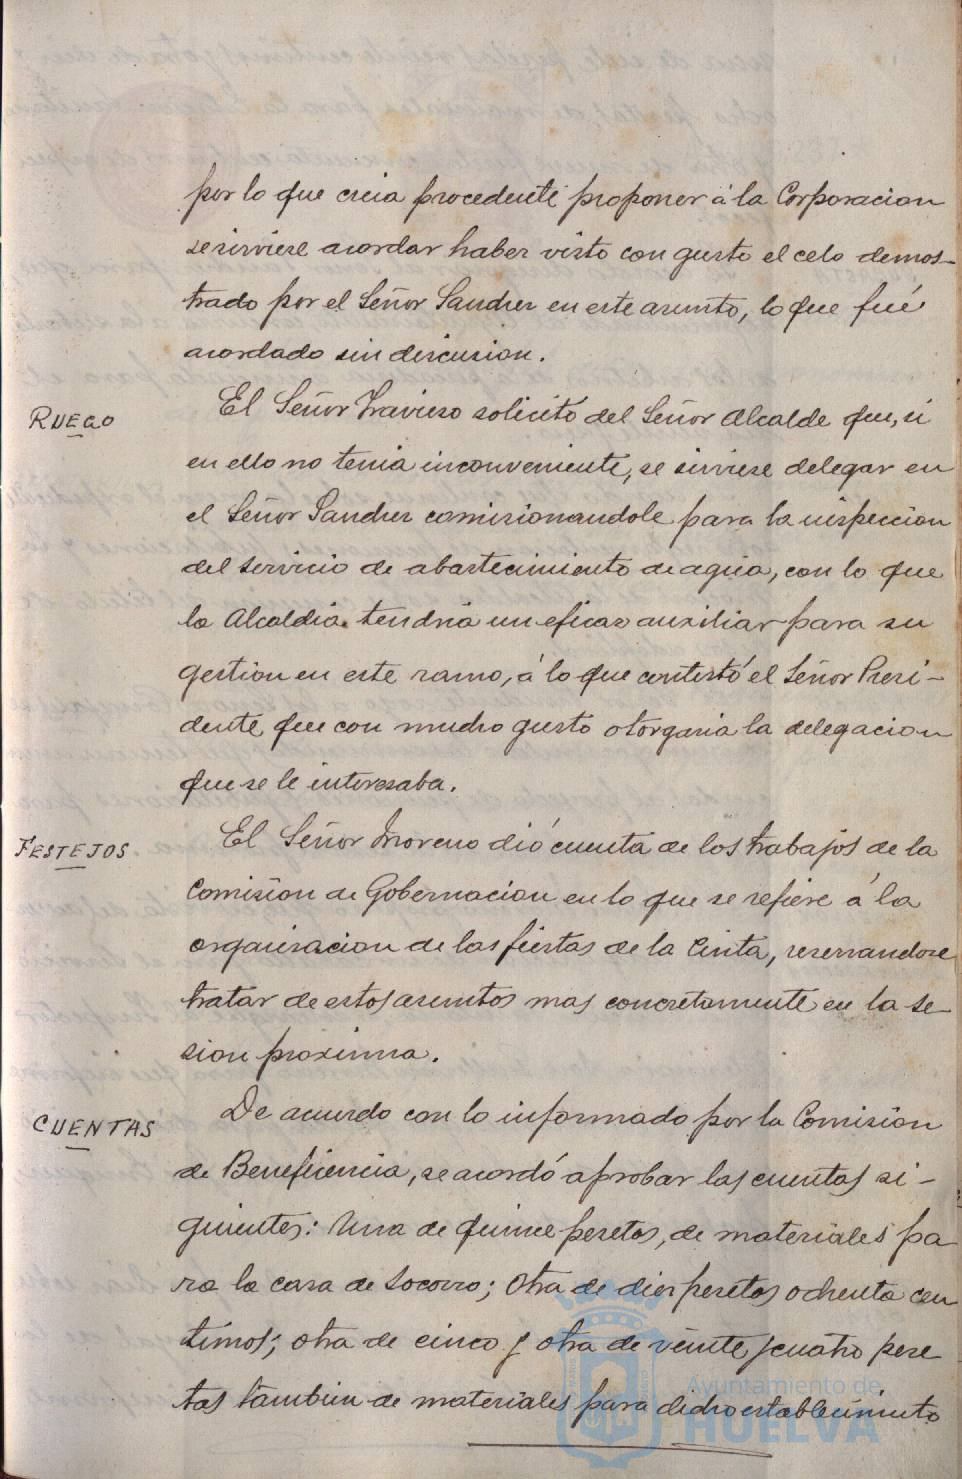 por lo que creia procedente proponer á la Corporacion
se sirviese acordar haber visto con gusto el celo demos-
trado por el Señor Sanchez en este asunto, lo que fué
acordado sin discusion.
RUEGO
El Señor Travieso solicitó del Señor Alcalde que, si
en ello no tenia inconveniente, se sirviese delegar en
el Señor Sanchez comisionandole para la inspeccion
del servicio de abastecimiento de agua, con lo que
la Alcaldia tendria un eficaz auxiliar para su
gestion en este ramo, á lo que contestó el Señor Presi-
dente que con mucho gusto otorgaria la delegacion
que se le interesaba.
FESTEJOS
El Señor Moreno dió cuenta de los trabajos de la
Comision de Gobernacion en lo que se refiere á la
organisacion de las fiestas de la Cinta, reservandose
tratar de estos asuntos mas concretamente en la se-
sion proxima.
CUENTAS
De acuerdo con lo informado por la Comision
de Beneficencia, se acordó aprobar las cuentas si-
guientes: Una de quince pesetas, de materiales pa
ra la casa de Socorro; otra de diez pesetas ochenta cen
timos; otra de cinco y otra de veinte y cuatro pese
tas tambien de materiales para dicho establecimiento
Ayuntamiento de
HUELVA